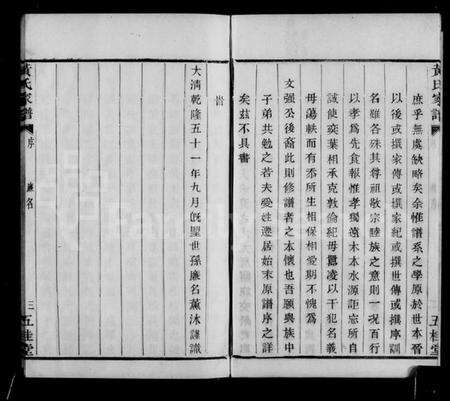 黃氏家譜
五桂堂
庶乎無處缺略矣余惟譜系之學原於世本晉
以後或撰家傳或撰家紀或撰世傳或撰序訓
名雖各殊其尊祖敬宗睦族之意則一況百行
以孝為先食報惟孝獨遠木本水源詎忘所自
誠使奕葉相承克敦倫紀毋囂凌以干犯名義
毋蕩軼而有忝所生相保相愛期不愧為
文強公後裔此則修譜者之本懷也吾願與族中
子弟共勉之若夫受姓遷居始末原譜序之詳
矣茲不具書
旹
大清乾隆五十一年九月既望世孫廉名薰沐謹識
黃氏家譜
序
廉名
三
五桂堂